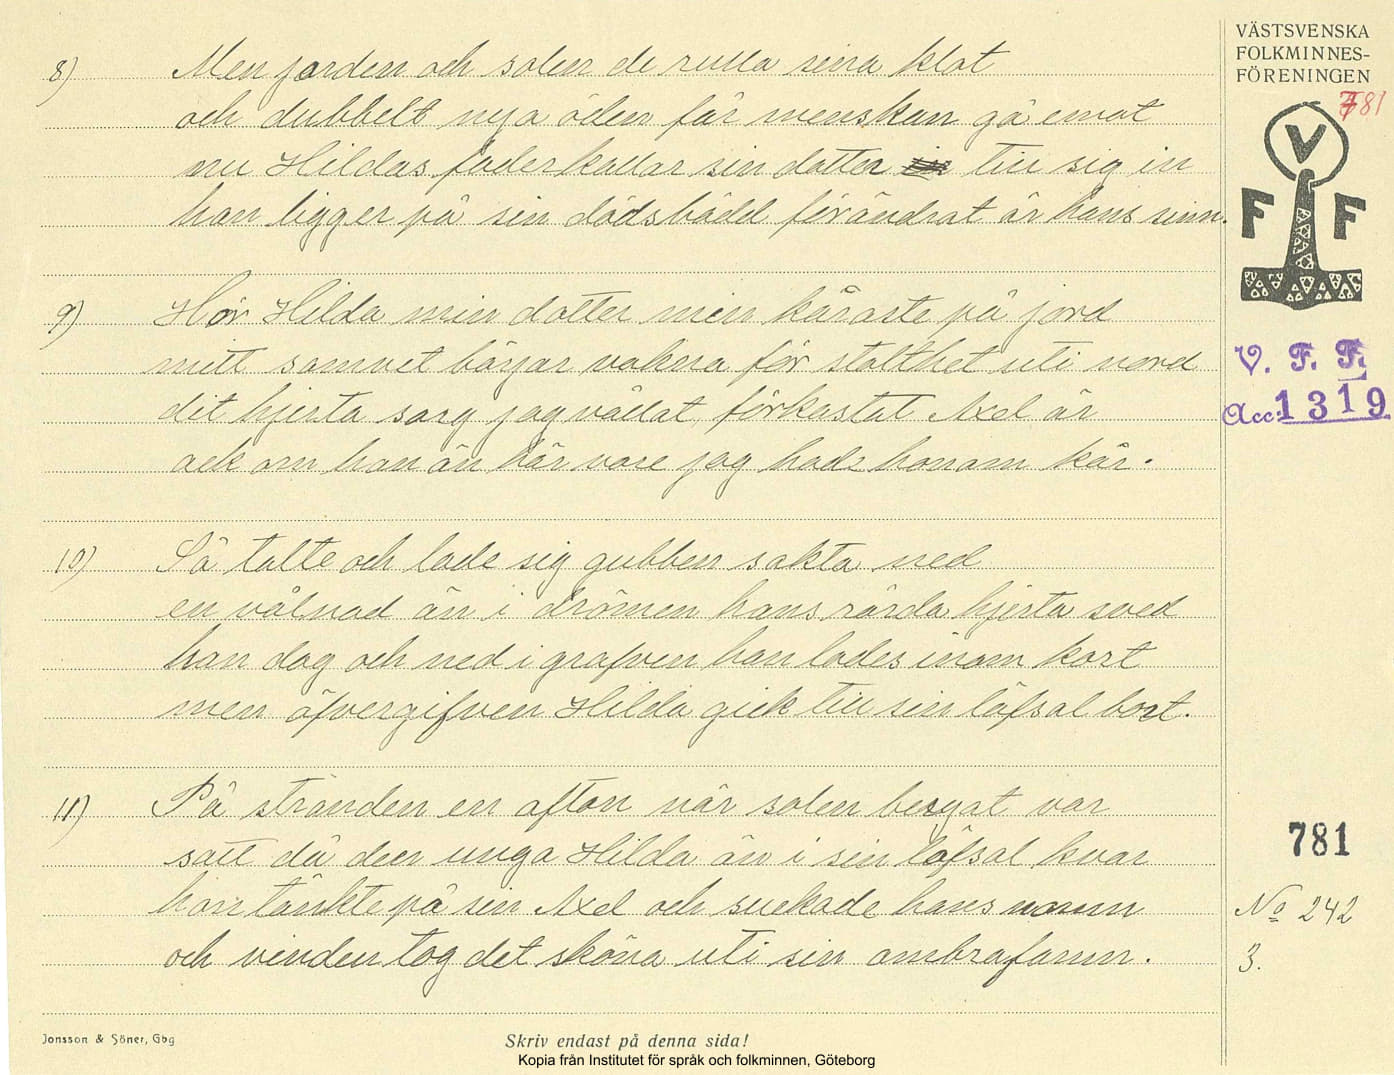 VÄSTSVENSKA
FOLKMINNES-
FÖRENINGEN
781
V
F F
V. F. F.
Acc: 1319
8) Men jorden och solen de rulla sina klot
och dubbelt nya öden får menskan gå emot
nu Hildas fader kallar sin dotter till sig in
han ligger på sin dödsbädd förändrat är hans sinn.
9) Hör Hilda min dotter min käraste på jord
mitt samvet börjar vakna för stolthet uti nord
dit hjerta sarg jag vållat, förkastat Axel är
ack om han än här vore jag hade honom kär.
10) Så talte och lade sig gubben sakta ned
en vålnad än i drömen hans rörda hjerta sved
han dog och ned i grafven han lades inom kort
men öfvergifven Hilda gick till sin löfsal bort.
11) På stranden en afton när solen bergat var
satt då den unga Hilda än i sin löfsal kvar
hon tänkte på sin Axel och suckade hans namn
och vinden tog det sköna uti sin ambrafamn.
781
No 242
3.
Jonsson & Söner, Gbg
Skriv endast på denna sida!
Kopia från Institutet för språk och folkminnen, Göteborg